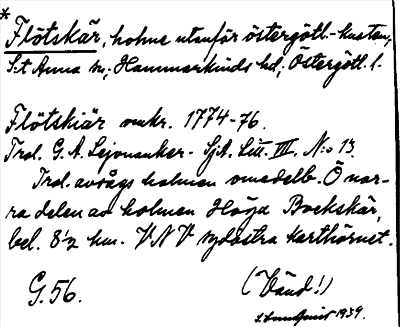 *
Flötskär, holme utanför östergötl.-kusten,
S:t Anna sn; Hammarkinds hd; Östergötl. l.
Flötskiär omkr. 1774-76.
Trol. G. A. Lejonanker - SjA. Litt. III. N:o 13.
Trol. avsågs holmen omedelb. Ö nor-
ra delen av holmen Höga Bockskär,
bel. 8½ km. VNV sydöstra karthörnet.
G. 56. (Vänd!)
1939.